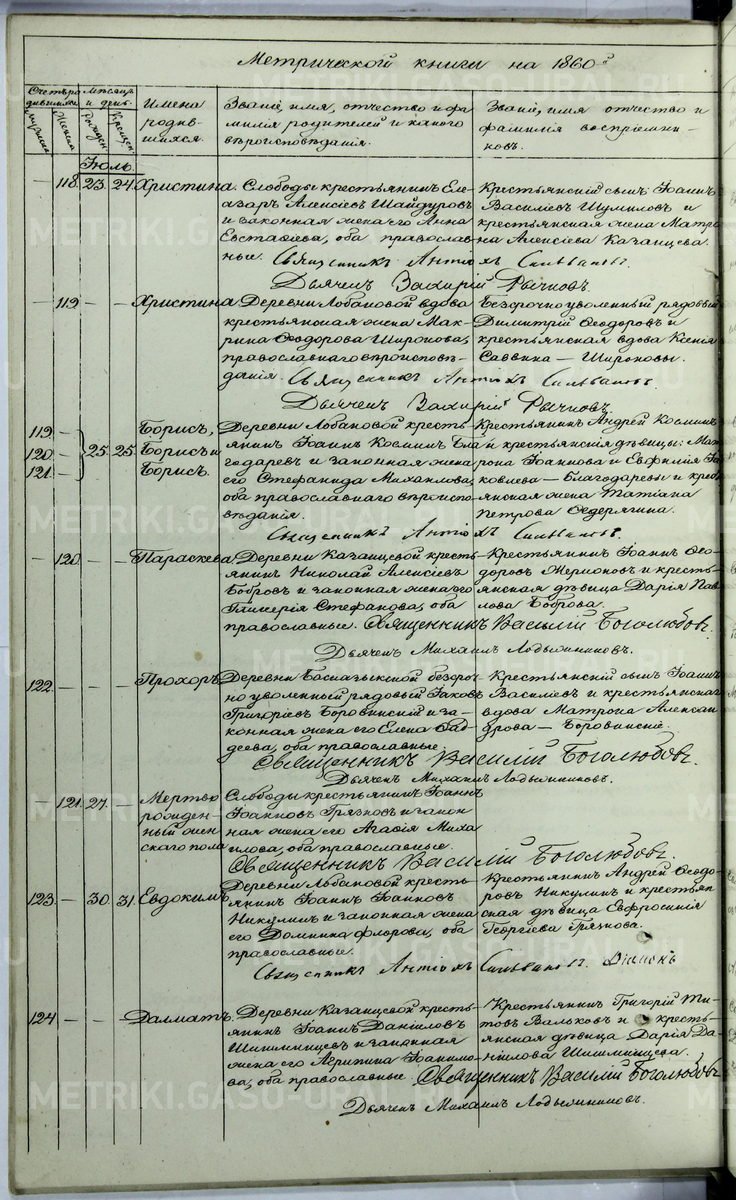 Метрической книги на 1860й
Счетъ родившихся
Мѣсяцъ и день
Имена родившихся.
Званіе, имя, отчество и фамилія родителей и какого вѣроисповѣданія.
Званіе, имя отчество и фамилія воспріемниковъ.
мужеска
Женска
Рожден.
Крещен.
Іюль.
118. 23. 24. Христина.
Слободы крестьянинъ Елеазаръ
Алексіевъ Шайдуровъ
и законная жена его Анна
Евстафіева, оба православные.
Крестьянскій сынъ Іоаннъ
Василіевъ Шумиловъ и
крестьянская жена Матрона
Алексіева Казанцева.
Священникъ Антіохъ Сильвановъ.
Дьячекъ Захарій Рычковъ.
119. Христина.
Деревни Лобановой вдова
крестьянская жена Макрина
Ѳеодорова Широкова,
православнаго вѣроисповѣданія.
Безсрочноуволенный рядовый
Димитрій Ѳеодоровъ и
крестьянская вдова Ксенія
Саввина — Широковы.
Священникъ Антіохъ Сильвановъ.
Дьячекъ Захарій Рычковъ.
119. 120. 121. 25. 25.
Борисъ,
Борисъ и
Борисъ.
Деревни Лобановой крестьянинъ
Іоаннъ Косминъ Благодаревъ
и законная жена
его Стефанида Михаилова,
оба православнаго вѣроисповѣданія.
Крестьянинъ Андрей Косминъ
и крестьянскія дѣвицы: Матрона
Іоаннова и Евфимія Іаковлева
— Благодаревы и крестьянская
жена Татіана
Петрова Федерягина.
Священникъ Антіохъ Сильвановъ.
120. Параскева.
Деревни Казанцевой крестьянинъ
Николай Алексіевъ
Бобровъ и законная жена его
Гликерія Стефанова, оба
православные.
Крестьянинъ Іоаннъ Ѳеодоровъ
Жерноновъ и крестьянская
дѣвица Дарія Павлова
Боброва.
Священникъ Василій Боголюбовъ.
Дьячекъ Михаилъ Лодыжниковъ.
122. Прохоръ.
Деревни Басказыкской безсрочноуволенный
рядовый Іаковъ
Григоріевъ Боровинскій и законная
жена его Елена Фаддеева,
оба православные.
Крестьянскій сынъ Іоаннъ
Василіевъ и крестьянская
вдова Матрона Александрова
— Боровинскіе.
Священникъ Василій Боголюбовъ.
Дьячекъ Михаилъ Лодыжниковъ.
121. 27.
Мертворожденный
женскаго пола
Слободы крестьянинъ Іоаннъ
Іоанновъ Грязновъ и законная
жена его Агафія Михаилова,
оба православные.
Священникъ Василій Боголюбовъ.
123. 30. 31. Евдокимъ.
Деревни Лобановой крестьянинъ
Іоаннъ Іоанновъ
Никулинъ и законная жена
его Домника Флорова, оба
православные.
Крестьянинъ Андрей Ѳеодоровъ
Никулинъ и крестьянская
дѣвица Евфросинія
Георгіева Грязнова.
Священникъ Антіохъ Сильвановъ. Діаконъ
124. Далматъ.
Деревни Казанцевой крестьянинъ
Іоаннъ Даніиловъ
Шишминцевъ и законная
жена его Агрипина Іоакимова,
оба православные
Крестьянинъ Григорій Титовъ
Вальковъ и крестьянская
дѣвица Дарія Даніилова
Шишминцева.
Священникъ Василій Боголюбовъ
Дьячекъ Михаилъ Лодыжниковъ.
METRIKI.GASO-URAL.RU